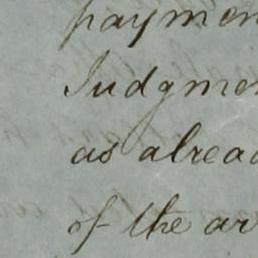 paymen
Judgmen
as alread
of the ar